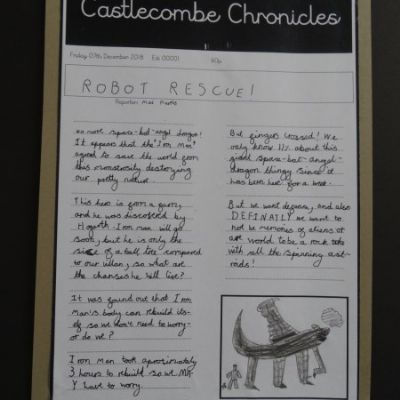 Castlecombe Chronicles
Friday 07th December 2018 Edi 00001 60p
ROBOT RESCUE!
Reporter:
no more space-bat-angel dragon!
It appears that the 'Iron Man'
agreed to save the world from
this monstrosity destroying
our pretty nature.
This hero is from a farm,
and he was discovered by
Hogarth. Iron man will go
soon, but he is only the
size of a ball bite compared
to our villan, so what are
the chanses he will live?
It was found out that Iron
Man's body can rebuild its-
elf so we won't need to worry-
or do we?
Iron Man took aproximately
3 hours to rebuild so we
have to worry.
But fingers crossed! We
only know 1% about this
giant space-bat-angel-
dragon thingy since it
has been here for a week.
But we want defense, and also
DEFINATLY we want to
not be memories of aliens of
our world to be a rock
with all the spinning ast-
roids!